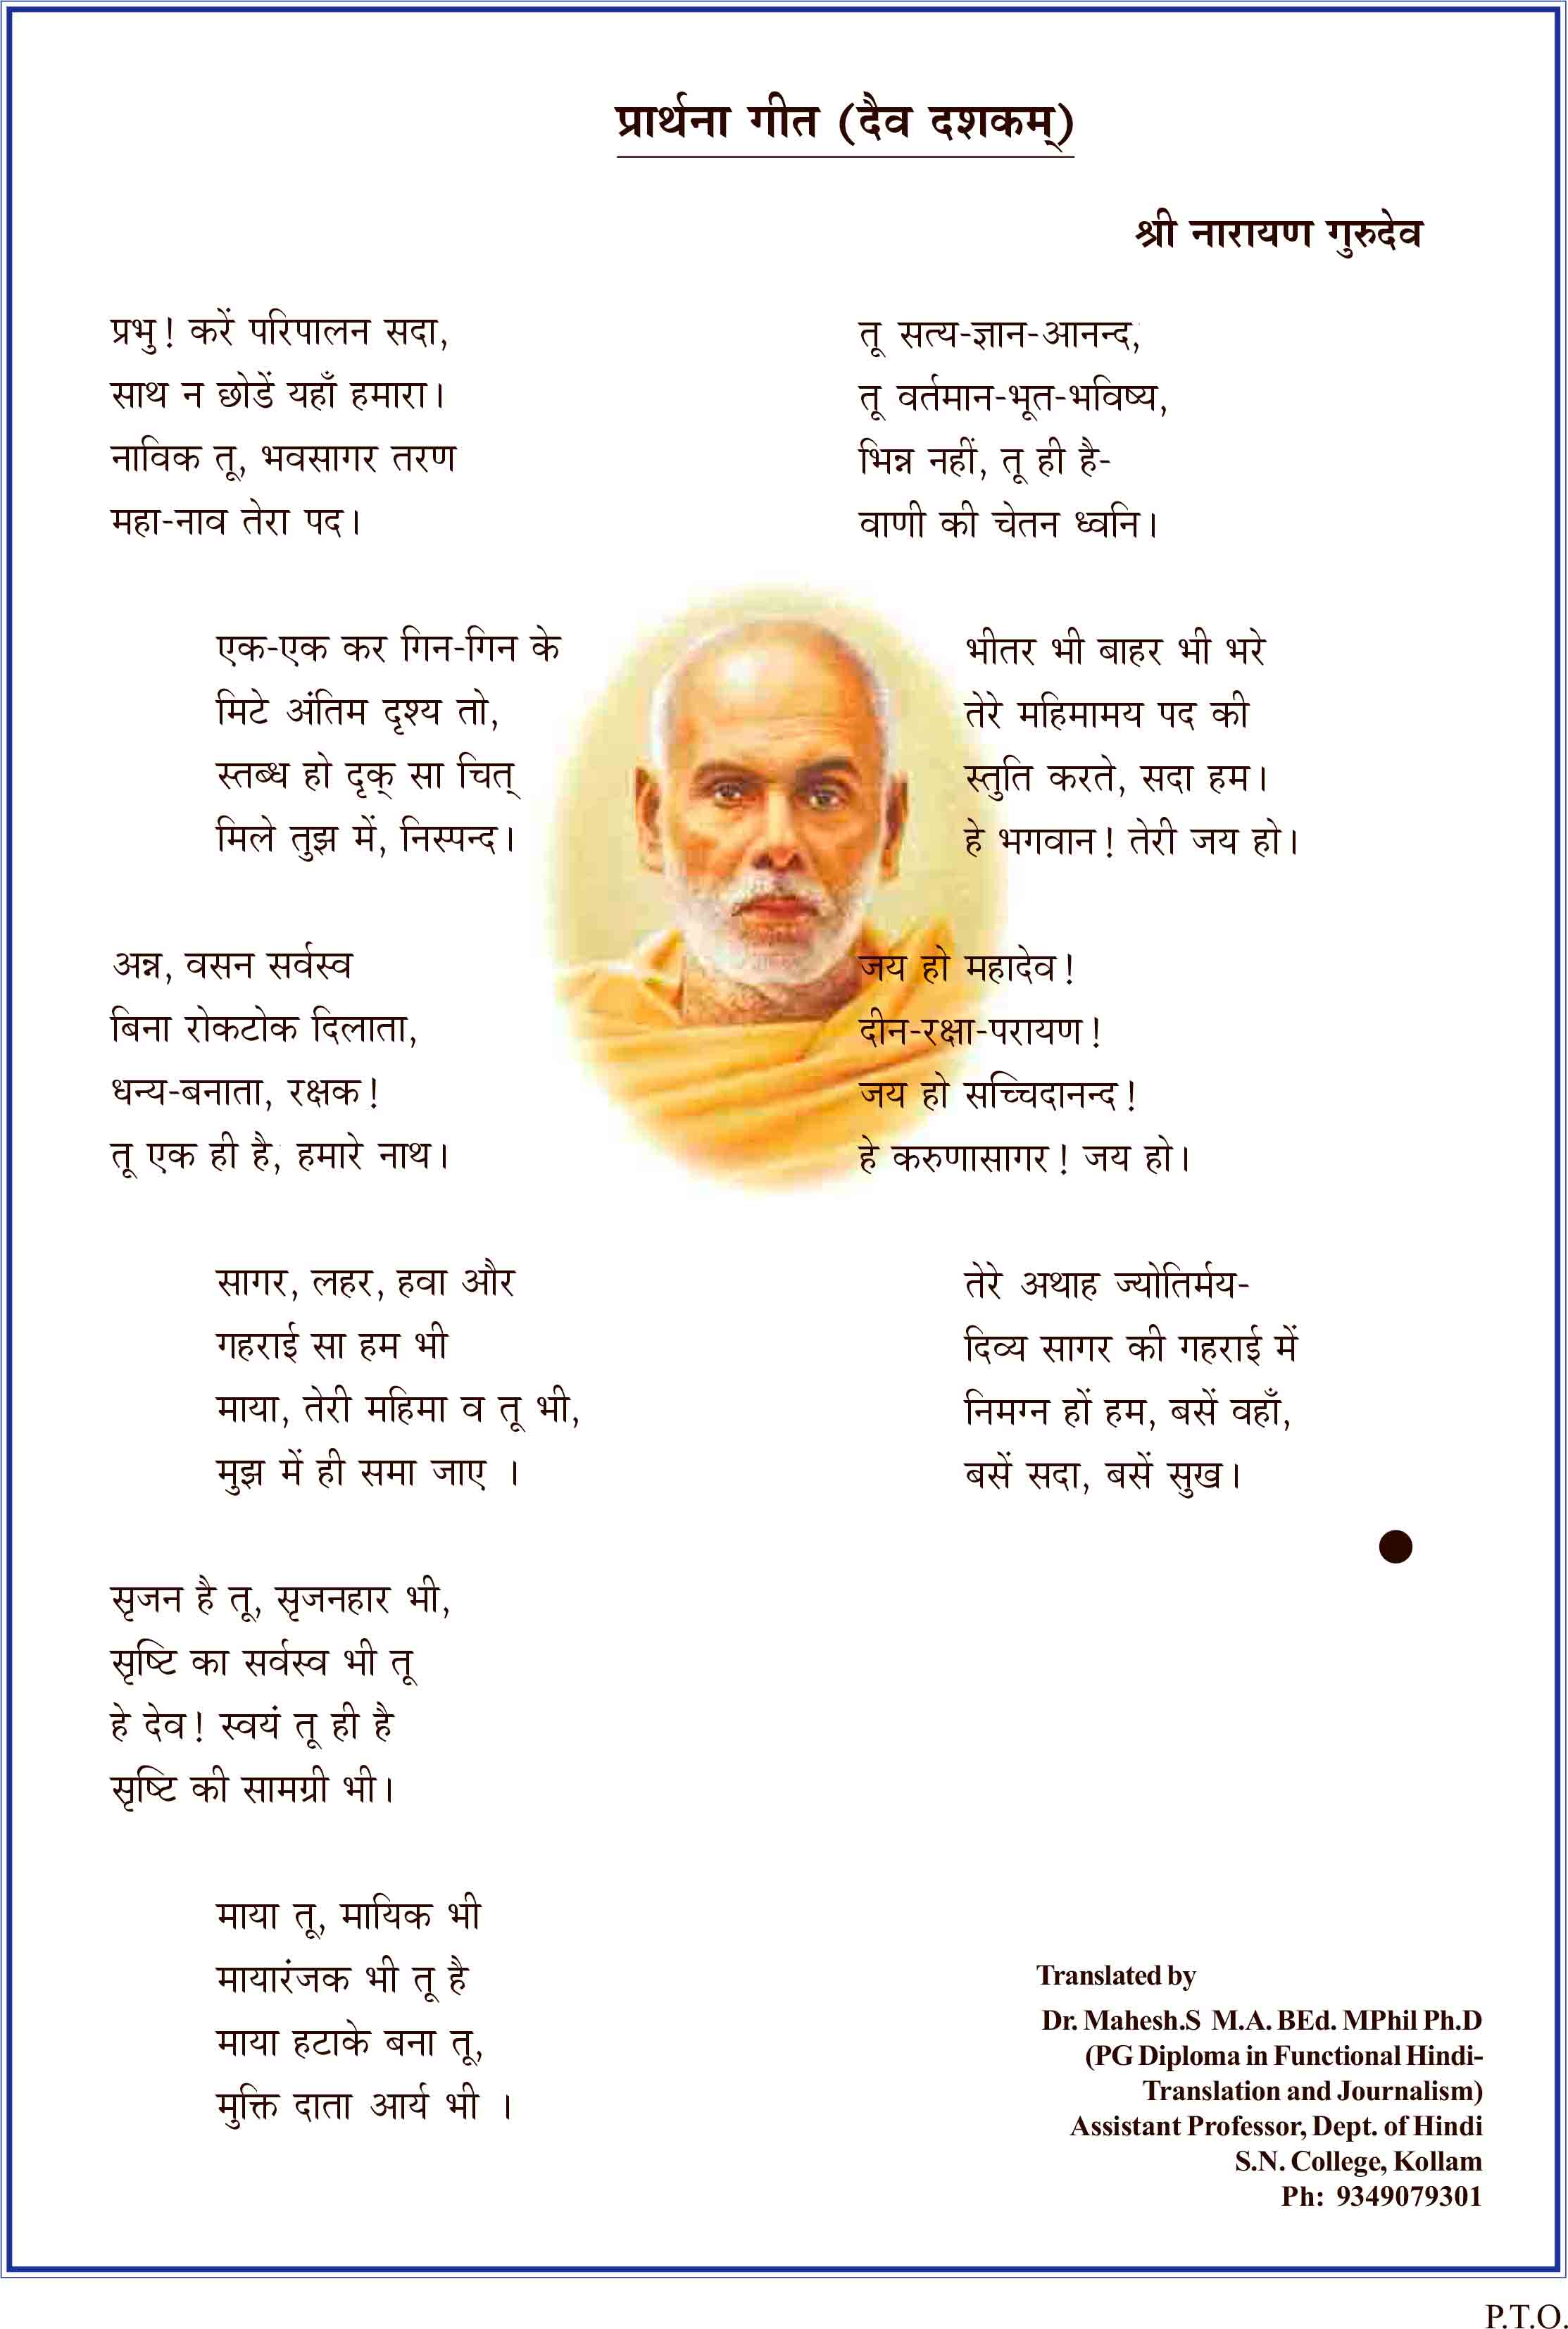 प्रार्थना गीत (दैव दशकम्)
श्री नारायण गुरुदेव
प्रभु! करें परिपालन सदा,
साथ न छोडें यहाँ हमारा।
नाविक तू, भवसागर तरण
महा-नाव तेरा पद।
एक-एक कर गिन-गिन के
मिटे अंतिम दृश्य तो,
स्तब्ध हो दृक् सा चित्
मिले तुझ में, निस्पन्द।
अन्न, वसन सर्वस्व
बिना रोकटोक दिलाता,
धन्य-बनाता, रक्षक!
तू एक ही है, हमारे नाथ।
सागर, लहर, हवा और
गहराई सा हम भी
माया, तेरी महिमा व तू भी,
मुझ में ही समा जाए ।
सृजन है तू, सृजनहार भी,
सृष्टि का सर्वस्व भी तू
हे देव! स्वयं तू ही है
सृष्टि की सामग्री भी।
माया तू, मायिक भी
मायारंजक भी तू है
माया हटाके बना तू,
मुक्ति दाता आर्य भी ।
तू सत्य-ज्ञान-आनन्द,
तू वर्तमान-भूत-भविष्य,
भिन्न नहीं, तू ही है-
वाणी की चेतन ध्वनि।
भीतर भी बाहर भी भरे
तेरे महिमामय पद की
स्तुति करते, सदा हम।
हे भगवान! तेरी जय हो।
जय हो महादेव!
दीन-रक्षा-परायण!
जय हो सच्चिदानन्द!
हे करुणासागर! जय हो।
तेरे अथाह ज्योतिर्मय-
दिव्य सागर की गहराई में
निमग्न हों हम, बसें वहाँ,
बसें सदा, बसें सुख।
Translated by
Dr. Mahesh.S M.A. BEd. MPhil Ph.D
(PG Diploma in Functional Hindi-
Translation and Journalism)
Assistant Professor, Dept. of Hindi
S.N. College, Kollam
Ph: 9349079301
P.T.O.